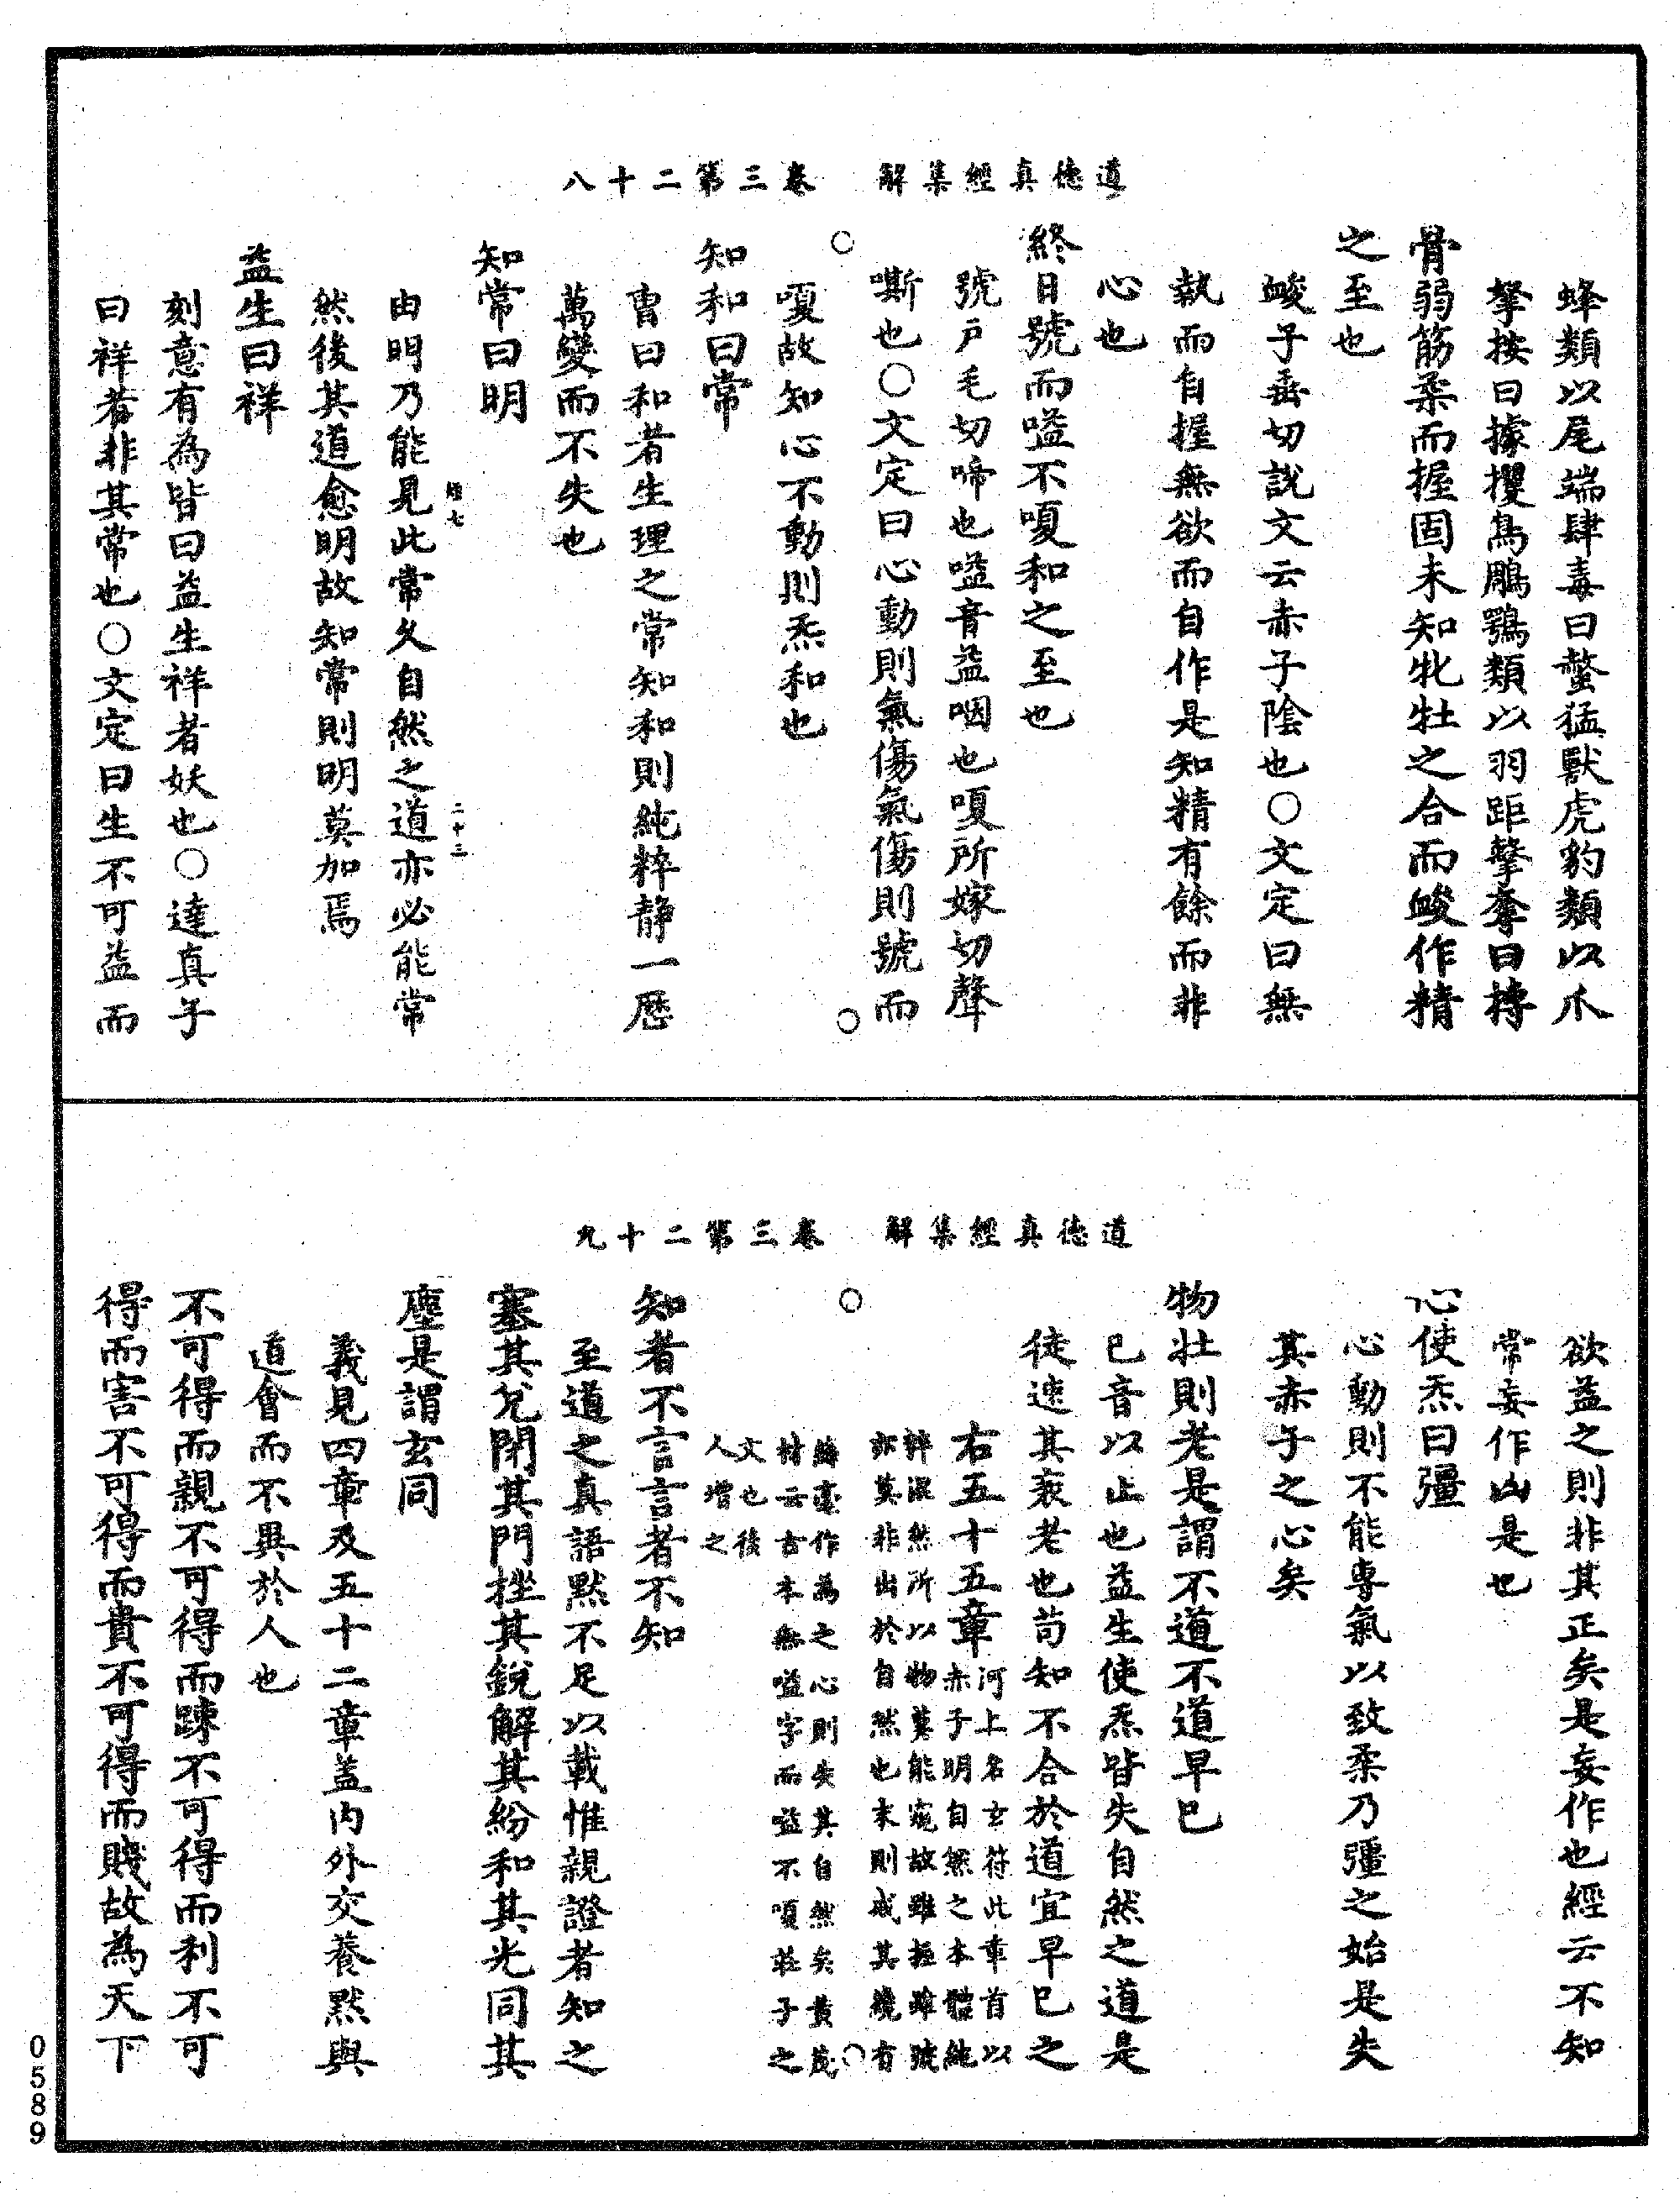 道德真經集解　卷三第二十八
蜂類以尾端肆毒曰螫猛獸虎豹類以爪
拏按曰據攫鳥鵰鶚類以羽距擊奪曰搏
骨弱筋柔而握固未知牝牡之合而峻作精
之至也
峻子垂切說文云赤子陰也○文定曰無
執而自握無欲而自作是知精有餘而非
心也
終日號而嗌不嗄和之至也
號戶毛切啼也嗌音益咽也嗄所嫁切聲
嘶也○文定曰心動則氣傷氣傷則號而
嗄故知心不動則炁和也
知和曰常
曹曰和者生理之常知和則純粹静一歷
萬變而不失也
知常曰明
二十三
由明乃能見此常久自然之道亦必能常
然後其道愈明故知常則明莫加焉
益生曰祥
刻意有為皆曰益生祥者妖也○達真子
曰祥者非其常也○文定曰生不可益而
道德真經集解　卷三第二十九
欲益之則非其正矣是妄作也經云不知
常妄作凶是也
心使炁曰彊
心動則不能專氣以致柔乃彊之始是失
其赤子之心矣
物壯則老是謂不道不道早已
已音以止也益生使炁皆失自然之道是
徒速其衰老也苟知不合於道宜早已之
右五十五章
河上名玄符此章首以
赤子明自然之本體純
粹混然所以物莫能窺故雖握雖號
亦莫非出於自然也末則戒其纔有
一毫作為之心則失其自然矣黄茂
材云古本無嗌字而嗌不嗄莊子之
文也後
人增之
知者不言言者不知
至道之真語默不足以載惟親證者知之
塞其兌閉其門挫其銳解其紛和其光同其
塵是謂玄同
義見四章及五十二章盖内外交養默與
道會而不異於人也
不可得而親不可得而踈不可得而利不可
得而害不可得而貴不可得而賤故為天下
0589